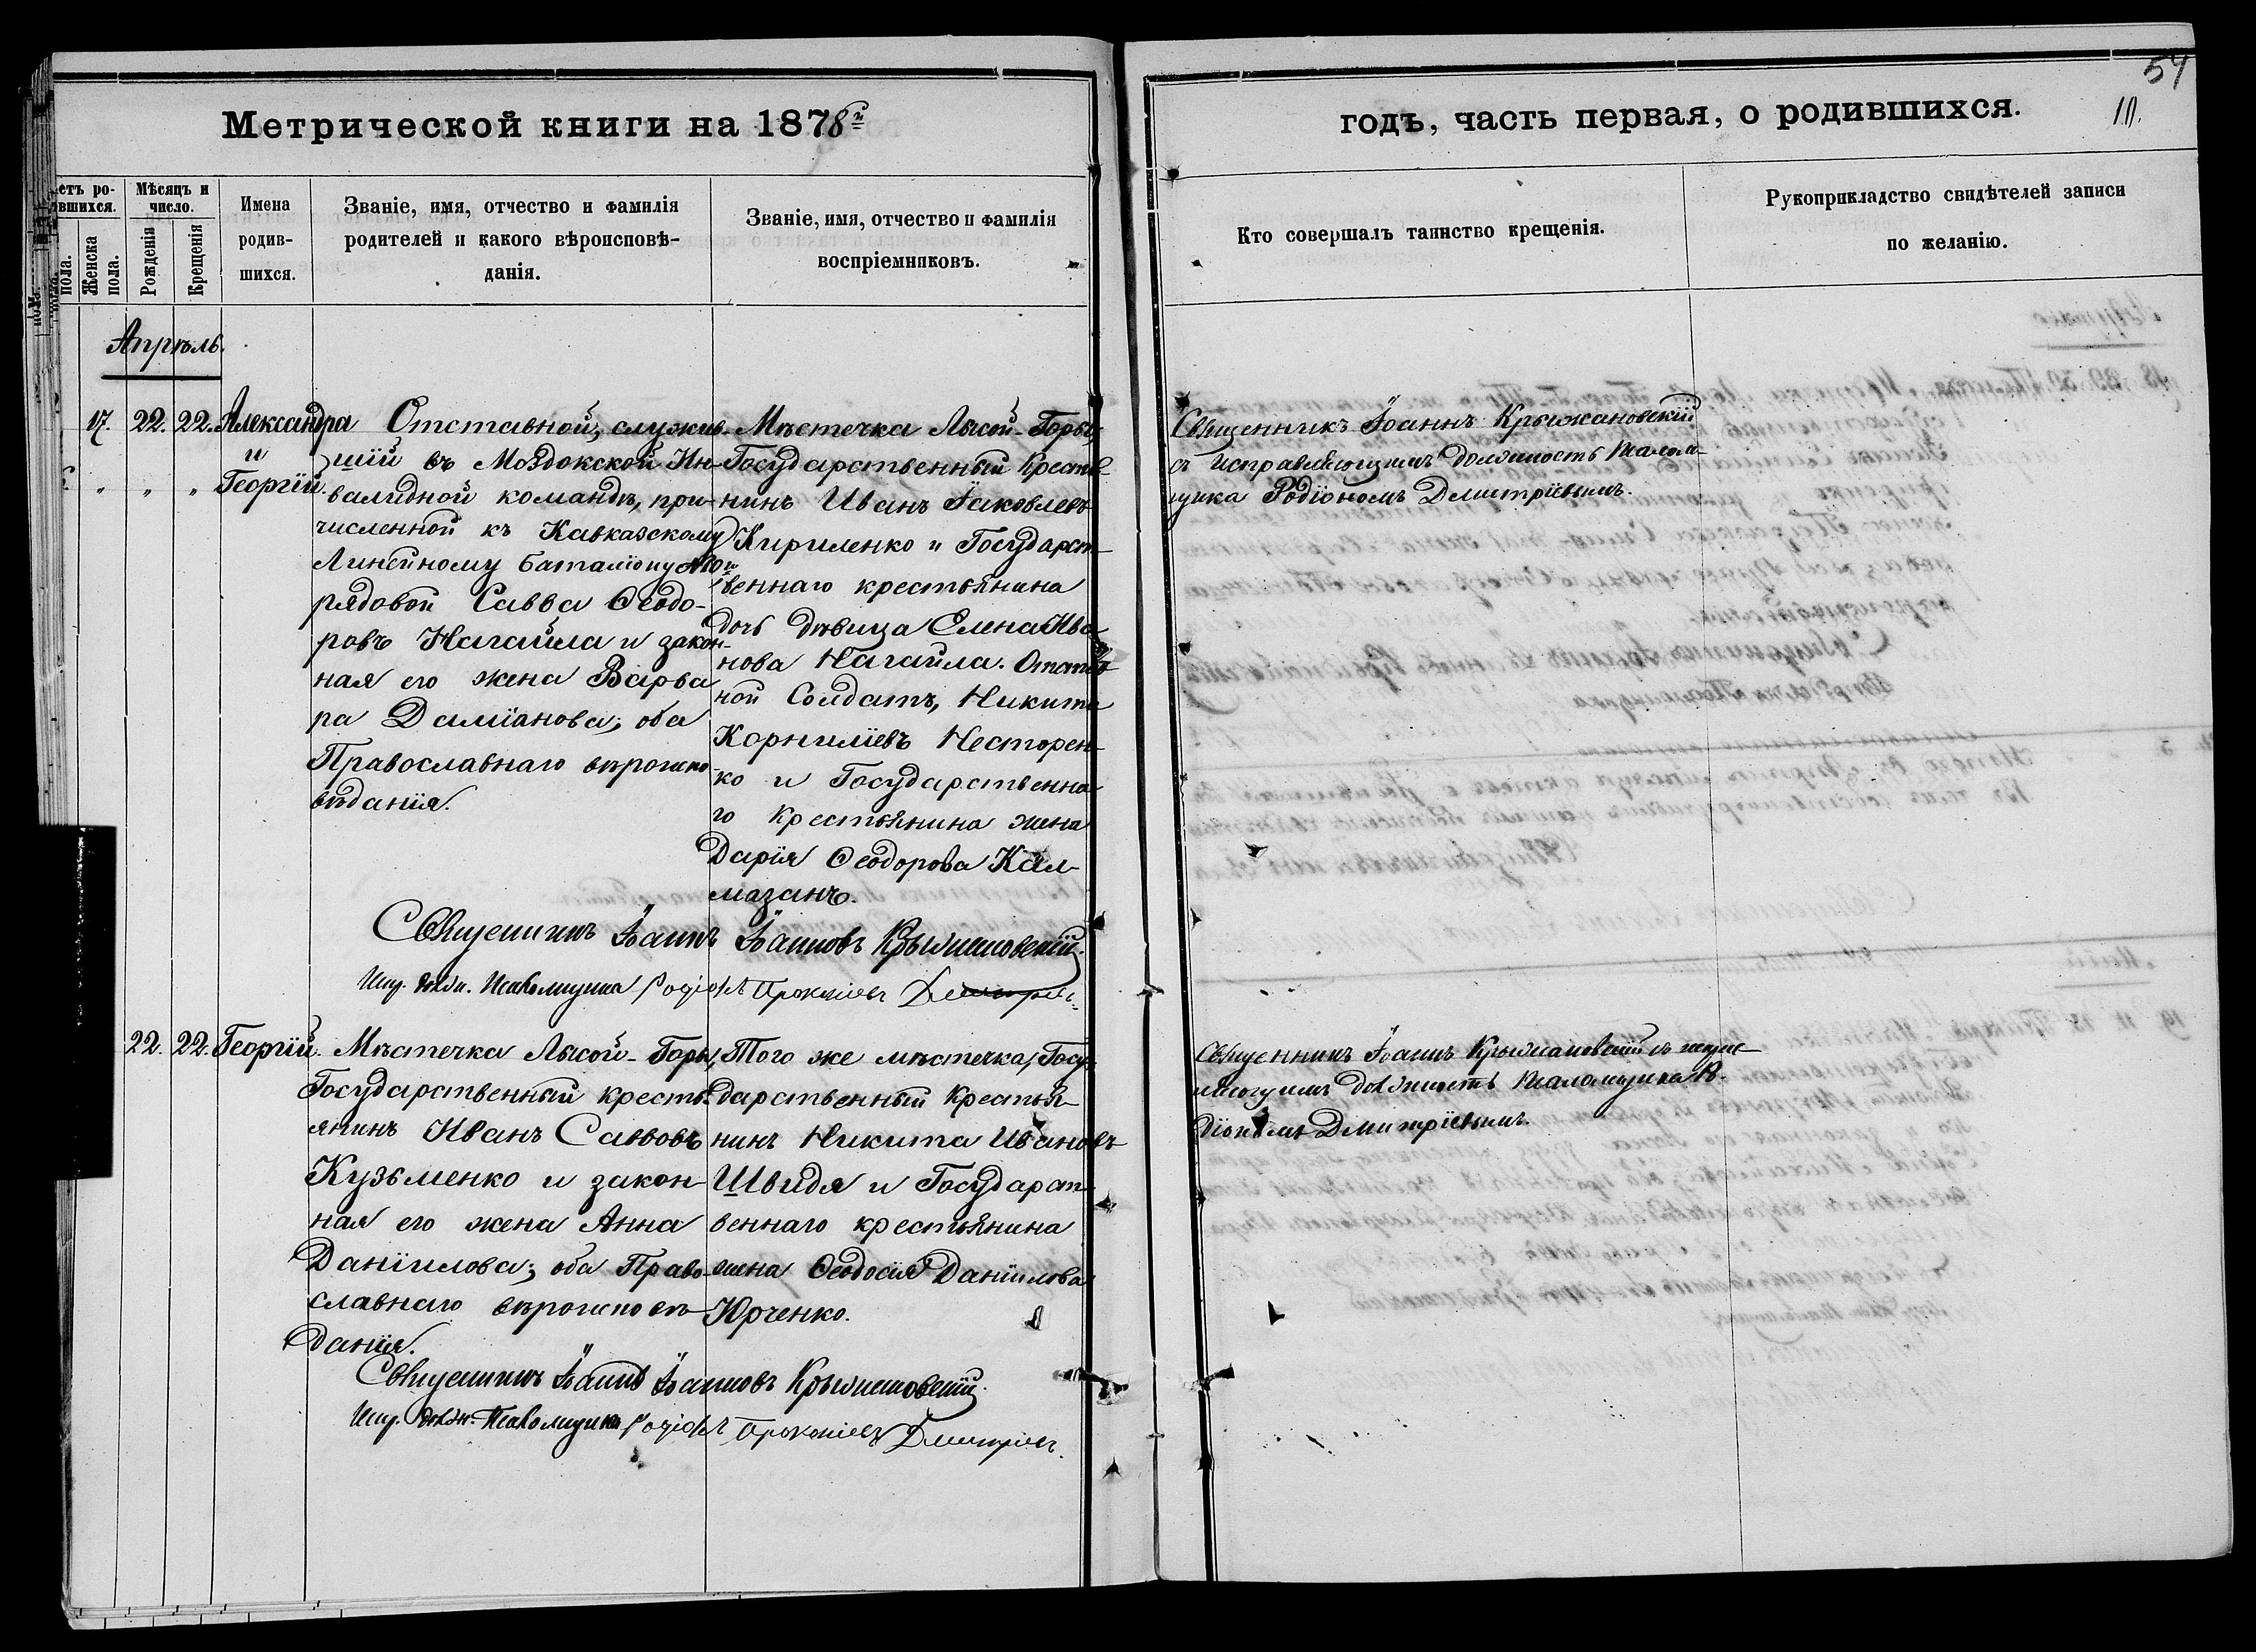 Метрической книги на 1878й
годъ, часть первая, о родившихся.
54
10.
Мѣсяцъ и число.
Женска пола.
Рожденія
Крещенія
Имена родив-
шихся.
Званіе, имя, отчество и фамилія
родителей и какого вѣроисповѣ-
данія.
Званіе, имя, отчество и фамилія
воспріемниковъ.
Кто совершалъ таинство крещенія.
Рукоприкладство свидѣтелей записи
по желанію.
Апрѣль.
17. 22. 22. Александра
и
" " " Георгій.
Отставной, служив-
шій въ Моздокской Ин-
валидной командѣ, при-
численной къ Кавказскому
Линейному баталіону
рядовой Савва Ѳеодо-
ровъ Нагайла и закон-
ная его жена Варва
ра Даміанова; оба
Православнаго вѣроиспо-
вѣданія.
Мѣстечка Лысой-Горы,
Государственный Крестья-
нинъ Иванъ Іаковлевъ
Кириленко и Государст-
веннаго крестьянина
дочь дѣвица Елена Ива-
нова Нагайла. Отстав-
ной Солдатъ, Никита
Корниліевъ Несторен-
ко и Государственна-
го Крестьянина жена
Дарія Ѳеодорова Кал-
мазанъ.
Священникъ Іоаннъ Крыжановскій
съ исправляющимъ должность псалом-
щика Родіономъ Дмитріевымъ.
Священникъ Іоаннъ Іоанновъ Крыжановскій.
Испр. должн. Псаломщика Родіонъ Прокопіевъ Дмитріевъ
22. 22. Георгій.
Мѣстечка Лысой-Горы,
Государственный кресть-
янинъ Иванъ Саввовъ
Кузьменко и закон-
ная его жена Анна
Даніилова; оба Право-
славнаго вѣроисповѣ-
данія.
Того же мѣстечка, Госу-
дарственный Крестья-
нинъ Никита Ивановъ
Швидя и Государст-
веннаго крестьянина
жена Ѳеодосія Даніилова
Юрченко.
Священникъ Іоаннъ Крыжановскій съ испра-
вляющимъ должность псаломщика Ро-
діономъ Дмитріевымъ.
Священникъ Іоаннъ Іоанновъ Крыжановскій.
Испр. должн. Псаломщика Родіонъ Прокопіевъ Дмитріевъ.